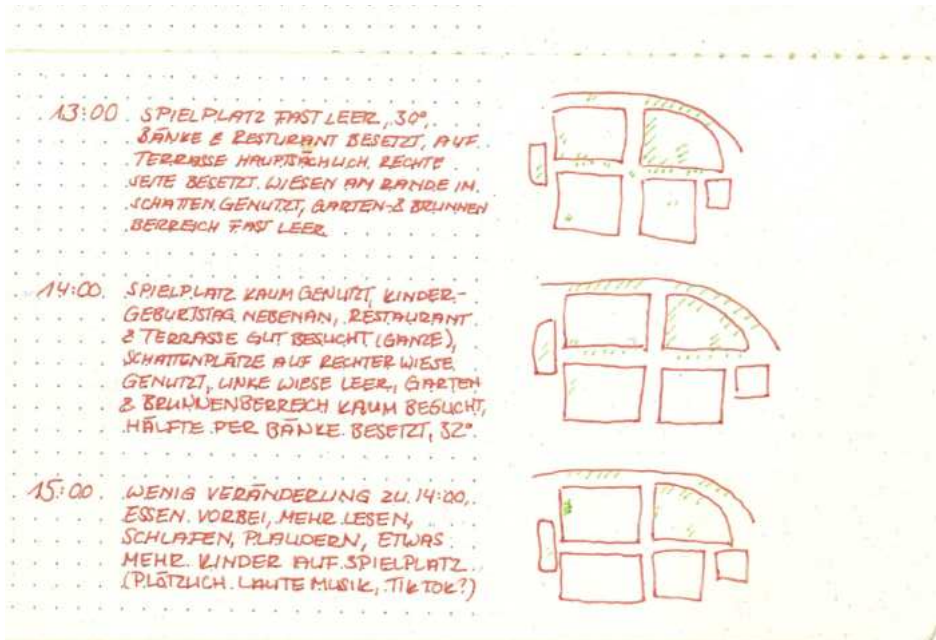 13:00 SPIELPLATZ FAST LEER, 30°,
BÄNKE & RESTURANT BESETZT, AUF
TERRASSE HAUPTSÄCHLICH RECHTE
SEITE BESETZT. WIESEN AM RANDE IM
SCHATTEN GENUTZT, GARTEN- & BRUNNEN
BERREICH FAST LEER
14:00 SPIELPLATZ KAUM GENUTZT, KINDER-
GEBURTSTAG NEBENAN, RESTAURANT
& TERRASSE GUT BESUCHT (GANZE),
SCHATTENPLÄTZE AUF RECHTER WIESE
GENUTZT, LINKE WIESE LEER, GARTEN
& BRUNNENBERREICH KAUM BESUCHT,
HÄLFTE PER BÄNKE BESETZT, 32°.
15:00 WENIG VERÄNDERUNG ZU 14:00,
ESSEN VORBEI, MEHR LESEN,
SCHLAFEN, PLAUDERN, ETWAS
MEHR KINDER AUF SPIELPLATZ
(PLÖTZLICH LAUTE MUSIK, TIKTOK?)